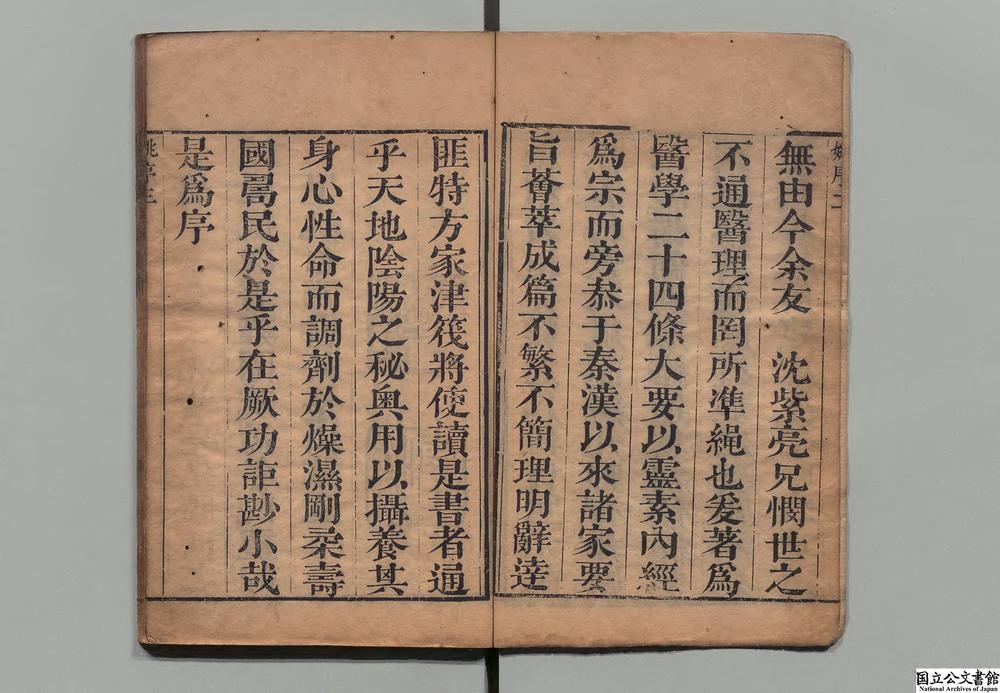 無由今余友　沈紫亮兄憫世之
不通醫理而罔所準繩也爰著爲
醫學二十四條大要以靈素內經
爲宗而旁叅于秦漢以來諸家要
旨薈萃成篇不繁不簡理明辭達
匪特方家津筏將使讀是書者通
乎天地陰陽之秘奥用以攝養其
身心性命而調劑於燥濕剛柔壽
國壽民於是乎在厥功詎尠小哉
是爲序
国立公文書館
National Archives of Japan